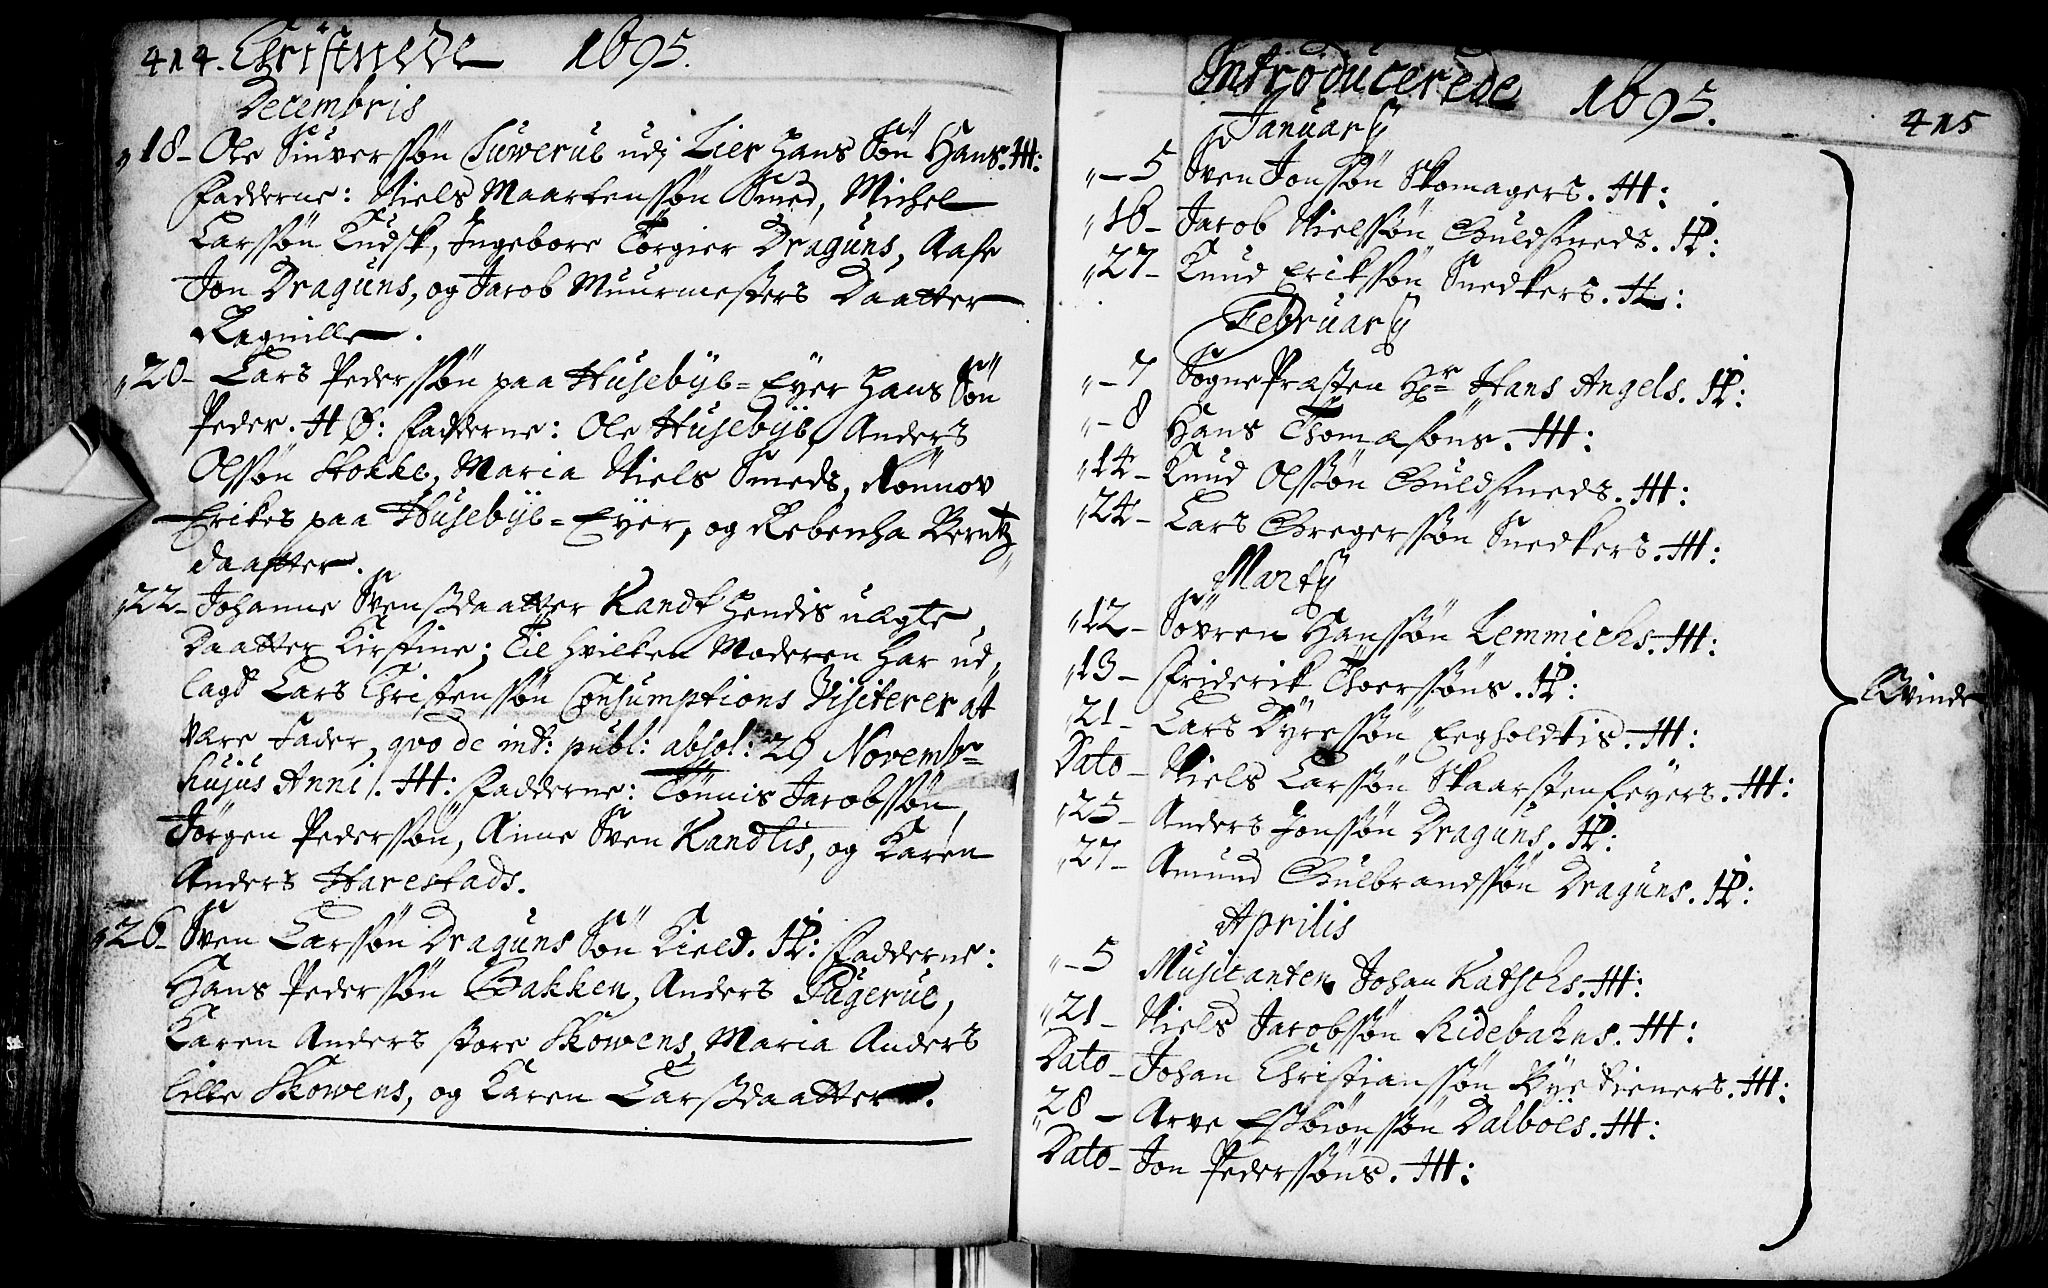 414. Christnede 1695.
Decembris
18 - Ole Siuversøn Suwerud udj Lier hans Søn Hans. HH:
Fadderne: Niels Maartenssøn Smed, Michel
Larssøn Kudsk, Ingebore Torgier Draguns, Aase
Jon Draguns, og Jacob Muurmesters Daatter
Ragnille.
20 - Lars Pederssøn paa Husebye = Eyer hans Søn
Peder. HØ: Fadderne: Ole Husebye, Anders
Olssøn Stokke, Maria Niels Smeds, Rønnov
Erikes paa Husebye = Eyer, og Rebecha Berntz
daatter.
22 - Johanne Svensdaatter Kandt hendis uægte
Daatter Kirstine; Til hvilken Moderen har ud,
lagdt Lars Christenssøn Consumptions Visiterer at
være Fader, quo de int: publ: absol: 29 Novembr
hujus Anni. HH: Fadderne: Tönnis Jacobssøn,
Jørgen Pederssøn, Anne Sven Kandtis, og Karen
Anders Harestads.
26 - Sven Larssøn Draguns Søn Kield. HP: Fadderne:
Hans Pederssøn Bakken, Anders Pagerud,
Karen Anders store Skowens, Maria Anders
lille Skowens, og Karen Larsdaatter.
Introducerede 1695. 415
Januarij
- 5 Sven Jonssøn Skomagers. HH:
16 - Jacob Nielssøn Guldsmeds. HP:
27 - Knud Erikssøn Snedkers. HL:
Februarij
- 7 Sogne Præsten Hr Hans Angels. HP:
- 8 Hans Thomasøns. HH:
14 - Knud Olssøn Guldsmeds. HH:
24 - Lars Gregerssøn Snedkers. HH:
Martij
12 - Søvren Hanssøn Lemmichs. HH:
13 - Friderik Thoerssøns. HP:
21 - Lars Dyressøn Eegholdtis. HH:
Dato - Niels Larssøn Skaarstenfeyers. HH:
Kvinde
25 - Anders Jonssøn Draguns. HP:
27 - Amund Gulbrandssøn Draguns. HP:
Aprilis
- 5 Musicanten Johan Katschs. HH:
21 - Niels Jacobssøn Ridebahns. HH:
Dato - Johan Christianssøn Bye tieners. HH:
28 - Arve Esbiønssøn Dalboes. HH:
Dato - Jon Pederssøns. HH: